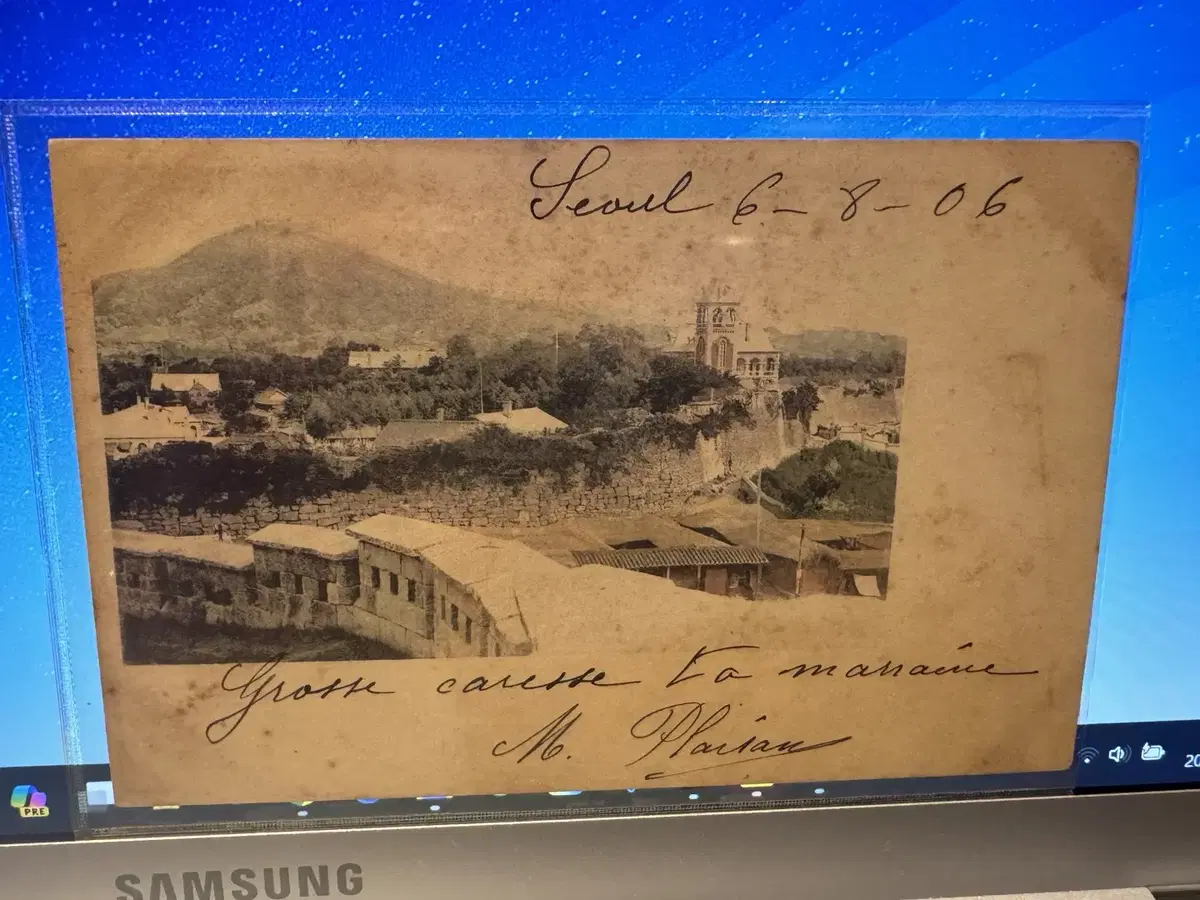 Seoul 6-8-06
Grosse caresse ta marraine
M. Plaisan
PRE
20
SAMSUNG